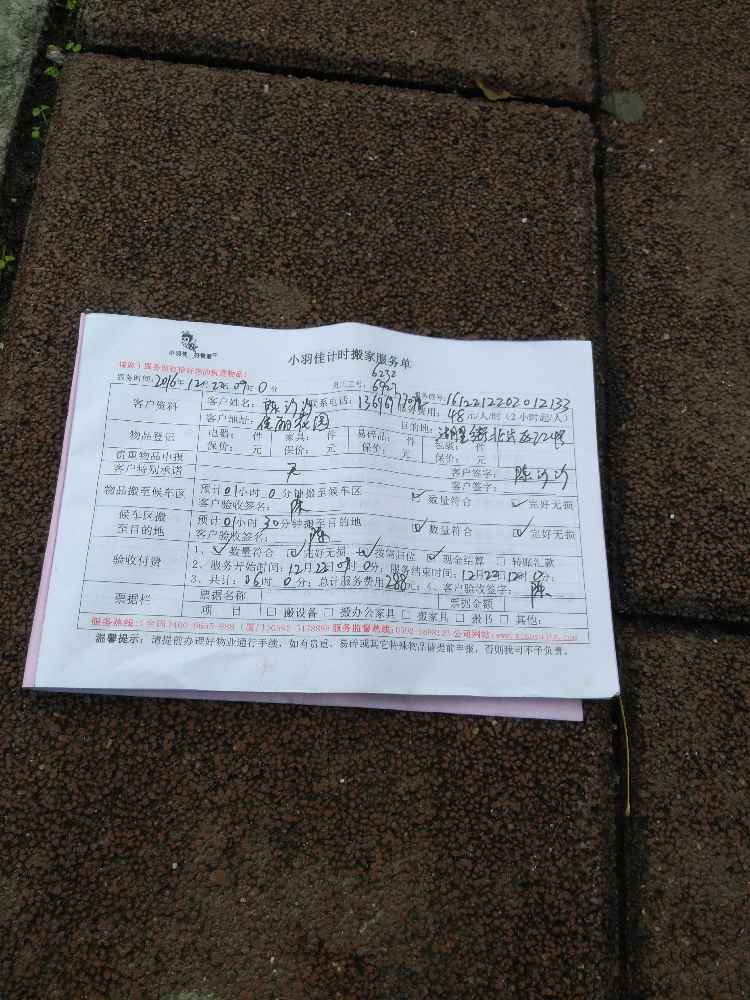 小羽佳计时搬家服务单
服务时间:2016年12月22日09时0分 员工工号:6252 6927 1612212202012133
客户资料 客户姓名: 联系电话: 费用:48元/人/时(2小时起/人)
客户地址:佳丽花园 目的地:
物品登记 电器: 件 家具: 件 易碎品: 件 包装: 件
保价: 元 保价: 元 保价: 元 保价: 元
贵重物品申报 无 客户签字:
客户特别承诺 客户签字:
物品搬至候车区 预计01小时0分钟搬至候车区 数量符合 完好无损
客户验收签名:陈
候车区搬至目的地 预计01小时30分钟搬至目的地 数量符合 完好无损
客户验收签名:陈
验收付费 1、数量符合 完好无损 按需归位 现金结算 转账汇款
2、服务开始时间:12月22日09时0分;服务结束时间:12月22日12时0分;
3、共计:06时0分;总计服务费用288元;4、客户验收签字:陈
票据栏 票据名称 票据金额
项 目 搬设备 搬办公家具 搬家具 搬书 其他:
温馨提示:请提前办理好物业通行手续,如有贵重、易碎或其它特殊物品请提前申报,否则我司不予负责。